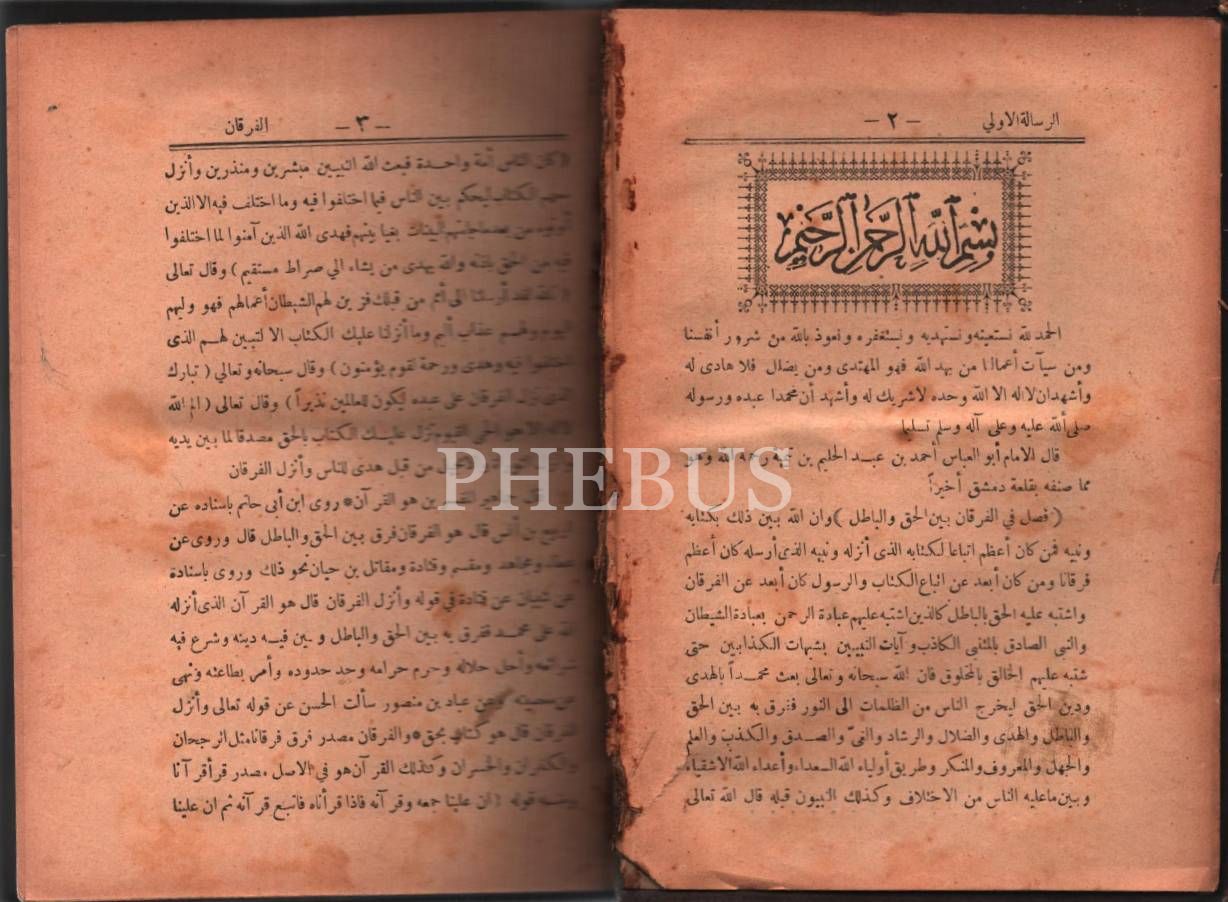 الرسالة الاولي
— ٢ —
بسم الله الرحمن الرحيم
الحمد لله نستعينه ونستهديه ونستغفره ونعوذ بالله من شرور أنفسنا
ومن سيآت أعمالنا من يهد الله فهو المهتدى ومن يضلل فلا هادى له
وأشهدان لااله الا الله وحده لاشريك له وأشهد أن محمدا عبده ورسوله
صلى ألله عليه وعلى آله وسلم تسليما
قال الامام أبو العباس أحمد بن عبد الحليم بن تيمية رحمه الله وهو
مما صنفه بقلعة دمشق أخيراً
(فصل في الفرقان بين الحق والباطل) وان الله بين ذلك بكتابه
ونبيه فمن كان أعظم اتباعا لكتابه الذى أنزله ونبيه الذى أرسله كان أعظم
فرقانا ومن كان أبعد عن اتباع الكتاب والرسول كان أبعد عن الفرقان
واشتبه عليه الحق بالباطل كالذين اشتبه عليهم عبادة الرحمن بعبادة الشيطان
والنبى الصادق بالمتنبى الكاذب وآيات النبيين بشبهات الكذابين حتى
شتبه عليهم الخالق بالمخلوق فان الله سبحانه وتعالى بعث محمداً بالهدى
ودين الحق ليخرج الناس من الظلمات الى النور ففرق به بين الحق
والباطل والهدى والضلال والرشاد والغى والصدق والكذب والعلم
والجهل والمعروف والمنكر وطريق أولياء الله السعداء وأعداء الله الاشقياء
وبين ماعليه الناس من الاختلاف وكذلك النبيون قبله قال الله تعالى
الفرقان
— ٣ —
(كان الناس أمة واحدة فبعث الله النبيين مبشرين ومنذرين وأنزل
معهم الكتاب ليحكم بين الناس فيما اختلفوا فيه وما اختلف فيه الا الذين
أوتوه من بعد ماجاءتهم البينات بغيا بينهم فهدى الله الذين آمنوا لما اختلفوا
فيه من الحق باذنه والله يهدى من يشاء الي صراط مستقيم) وقال تعالى
(تالله لقد أرسلنا الى أمم من قبلك فزين لهم الشيطان أعمالهم فهو وليهم
اليوم ولهم عذاب أليم وما أنزلنا عليك الكتاب الا لتبين لهم الذى
اختلفوا فيه وهدى ورحمة لقوم يؤمنون) وقال سبحانه وتعالي (تبارك
الذى نزل الفرقان على عبده ليكون للعالمين نذيراً) وقال تعالى (الم الله
لااله الا هو الحى القيوم نزل عليك الكتاب بالحق مصدقا لما بين يديه
من قبل هدى للناس وأنزل الفرقان
جماهير المفسرين هو القرآن* روى ابن أبى حاتم باسناده عن
الربيع بن أنس قال هو الفرقان فرق بين الحق والباطل قال وروى عن
عطاء ومجاهد ومقسم وقتادة ومقاتل بن حيان نحو ذلك وروى باسناده
عن شيبان عن قتادة في قوله وأنزل الفرقان قال هو القرآن الذى أنزله
الله على محمد ففرق به بين الحق والباطل وبين فيه دينه وشرع فيه
شرائعه وأحل حلاله وحرم حرامه وحد حدوده وأمر بطاعته ونهى
عن معصيته وعن عباد بن منصور سألت الحسن عن قوله تعالى وأنزل
الفرقان قال هو كتاب بحق* والفرقان مصدر فرق فرقانا مثل الرجحان
والكفران والخسران وكذلك القرآن هو في الاصل مصدر قرأ قرآنا
ومنه قوله (ان علينا جمعه وقرآنه فاذا قرأناه فاتبع قرآنه ثم ان علينا
PHEBUS